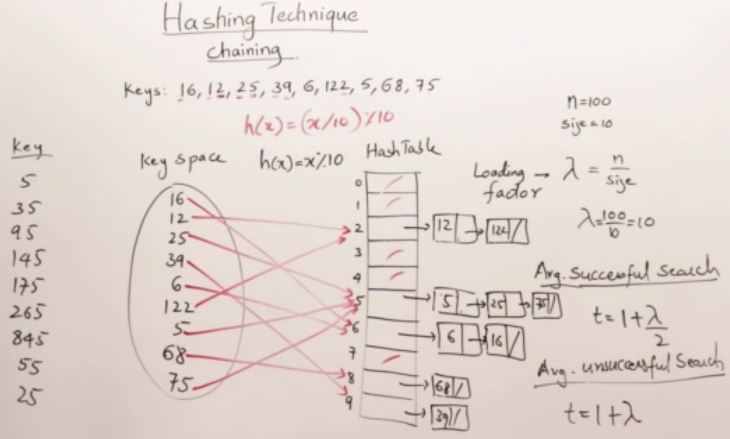 Hashing Technique
chaining
Keys: 16, 12, 25, 39, 6, 122, 5, 68, 75
h(x)=(x/10)%10
n=100
size=10
Key
5
35
95
145
175
265
845
55
25
Key space
16
12
25
39
6
122
5
68
75
h(x)=x%10
HashTable
0
1
2
3
4
5
6
7
8
9
12 122
5 25 75
6 16
68
39
Loading factor → λ = n/size
λ=100/10=10
Avg. Successful Search
t=1+λ/2
Avg. unsuccessful Search
t=1+λ